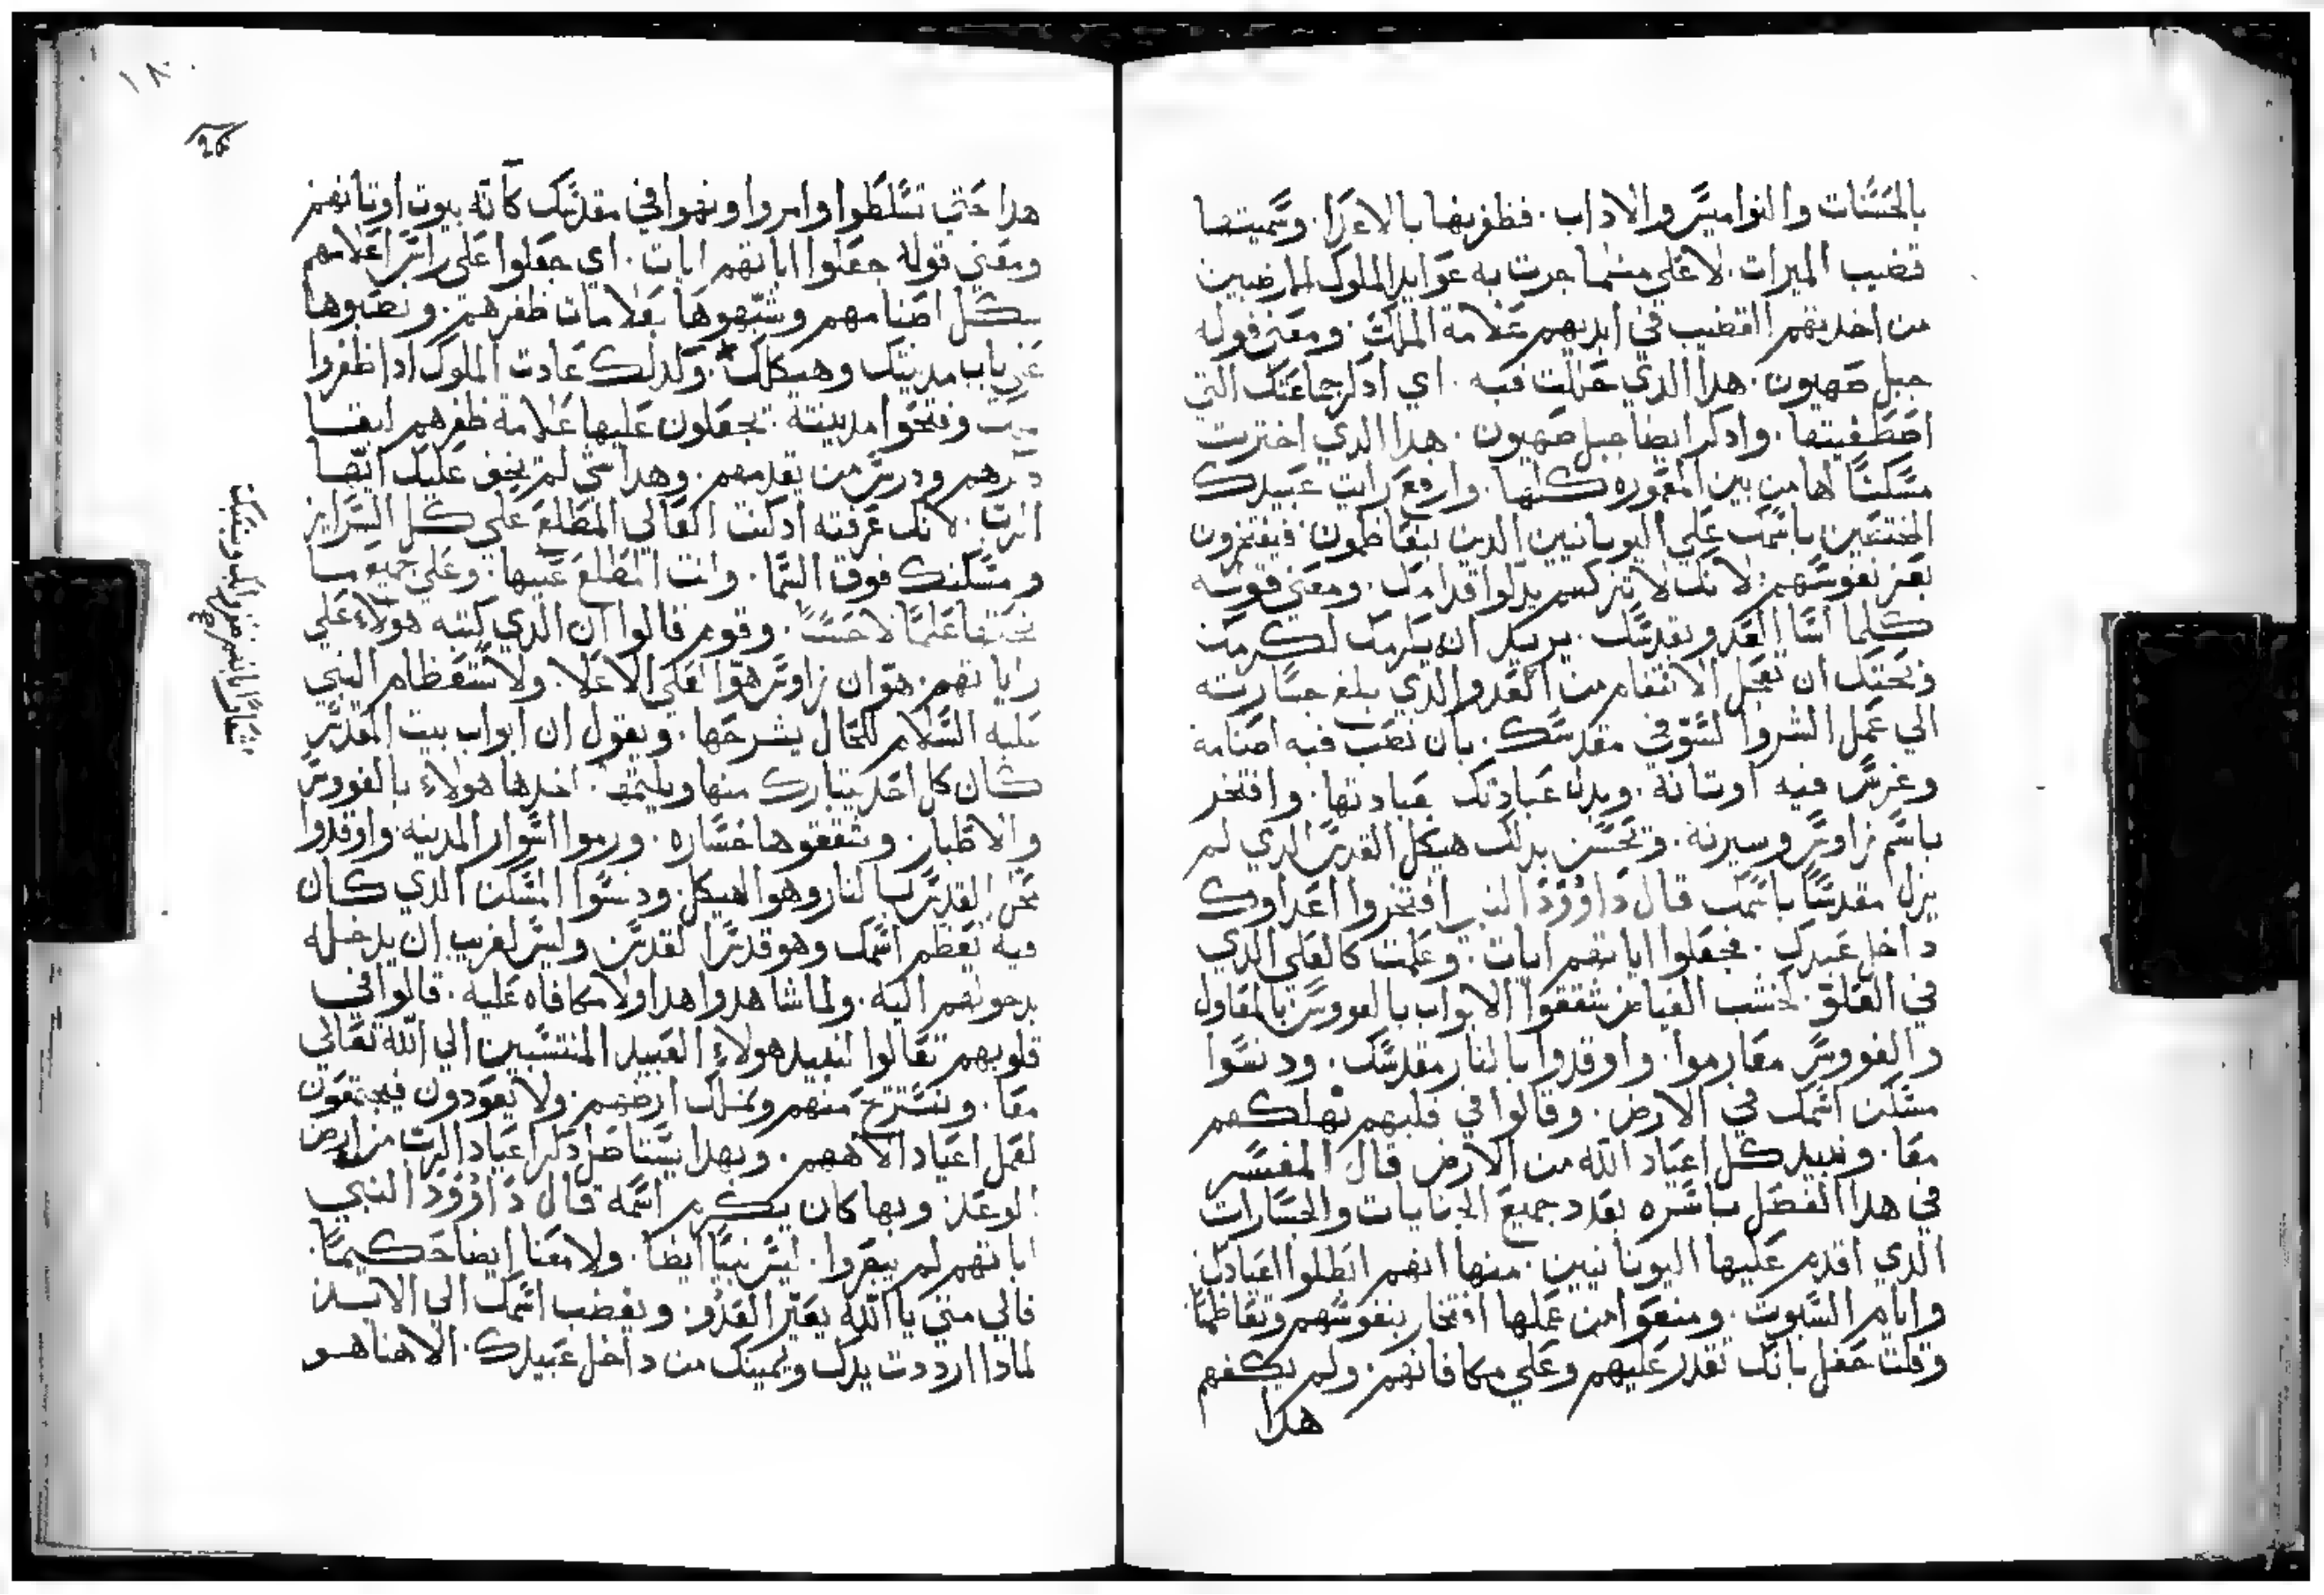 بالحسنات والنواميس والاداب. فظفربها بالاعدا. وسميتها
قضيب الميرات. لا على مثلما جرت به عوايد الملوك المارضيين
من اخد بهم القضيب في ايديهم علامة الملك. ومعنى قوله
جبل صهيون. هدا الدي حللت فيه. اي ادكر جماعتك التي
اصطفيتها. وادكر ايضا جبل صهيون. هدا الدي اخترت
مسكنًا لها من بين المعموره كلها. وارفع رايت عبيدك
المنتمين باسمك على اليونانيين الدين يتعاظمون فيفتخرون
بعز نفوسهم. لانك لا تتركهم يدلوا قدامك. ومعنى قوله
كلما اسا العدو بقدسك. يريد ان يلزمك لكرمك
وتحتك ان تعجل الانتقام من العدو الدي بلغ جسارته
الي عمل الشروا لسو في مقدسك. بان نصب فيه اصنامه
وغرس فيه اوتانه. وبدل عبادتك بعبادتها. وافتخر
باسم زاوس وسيرته. وتحسن بدلك هيكل القدس الدي لم
يزل مقدسًا باسمك قال داوود النبي افتخروا اعداوك
داخل عيدك. فجعلوا اياتهم ايات. وعلمت كالعلي الدي
في العلو. لخشب الغياض شققوا الابواب بالفووس بالمعاول
والفووس معا رموا. واوقدوا بالنار مقدسك. ودنسوا
مسكن اسمك في الارض. وقالوا في قلبهم نهلكهم
معا. ونبيد كل اعياد الله من الارض قال المفسر
في هدا الفصل باسره يعدد جميع الجنايات والجسارات
الدي اقدم عليها اليونانيين. منها انهم ابطلوا العبادات
وايام السبوت. ومنعوا من عملها افتخار بنفوسهم وتعاظمًا
وقلت حفل بانك تقدر عليهم وعلي مكافاتهم. ولم يكفهم
هدا
١٨٠
هدا حتي تسلطوا وامروا ونهوا في مقدسك كانه بيوت اوتانهم
ومعنى قوله جعلوا اياتهم ايات. اي جعلوا على راس اعلامهم
شكل اصنامهم وشبهوها بعلامات ظفرهم. ونصبوها
على باب مدينتك وهيكلك. وكدلك عادت الملوك ادا ظفروا
وفتحوا مدينته يجعلون عليها علامة ظفرهم ايقنا
ودرس من يقدمهم. وهدا شي لم يخف عليك ايضا
الرب. لانك عرفته ادكنت العالى المطلع على كل السراير
ومسكنك فوق السما. وانت المطلع عليها. وعلى جميع ما
علمًا لا حسًا. وقوم قالوا ان الدي كتبه هولاء على
راياتهم. هو ان زاوس هو العلي الاعلا. ولاستعظام النبي
عليه السلام للحال يشرحها. ويقول ان ابواب بيت المقدس
كان كل احد يتبارك منها ويلتمها. اخدها هولاء بالفووس
والاطبار. وشققوها خساره. ورموا اسوار المدينه واوقدوا
محل القدس بالنار وهو الهيكل. ودنسوا المسكن الدي كان
فيه تعظم اسمك وهو قدس القدس. وليس لغريب ان يدخل
بدخولهم اليه. ولما شاهدوا هدا ولا مكافاه عليه. قالوا في
قلوبهم تعالوا لنبيد هولاء العبيد المنتسبين الي الله تعالي
معا. ونستريح منهم ونملك ارضهم. ولا يعودون فيجتمعون
لعمل اعياد الاههم. وبهدا يستاصل دكر اعياد الرب من ارض
الوعد. وبها كان يكرم اسمه قال داوود النبي
اياتهم لم يبصروا. ليس نبيًا ايضًا. ولا معنا ايضا حكيمًا.
فالي متي يا الله يعير العدو. ويغضب اسمك الي الابد
لمادا ارددت يدك ويمينك من داخل عبيدك. الاهنا هو